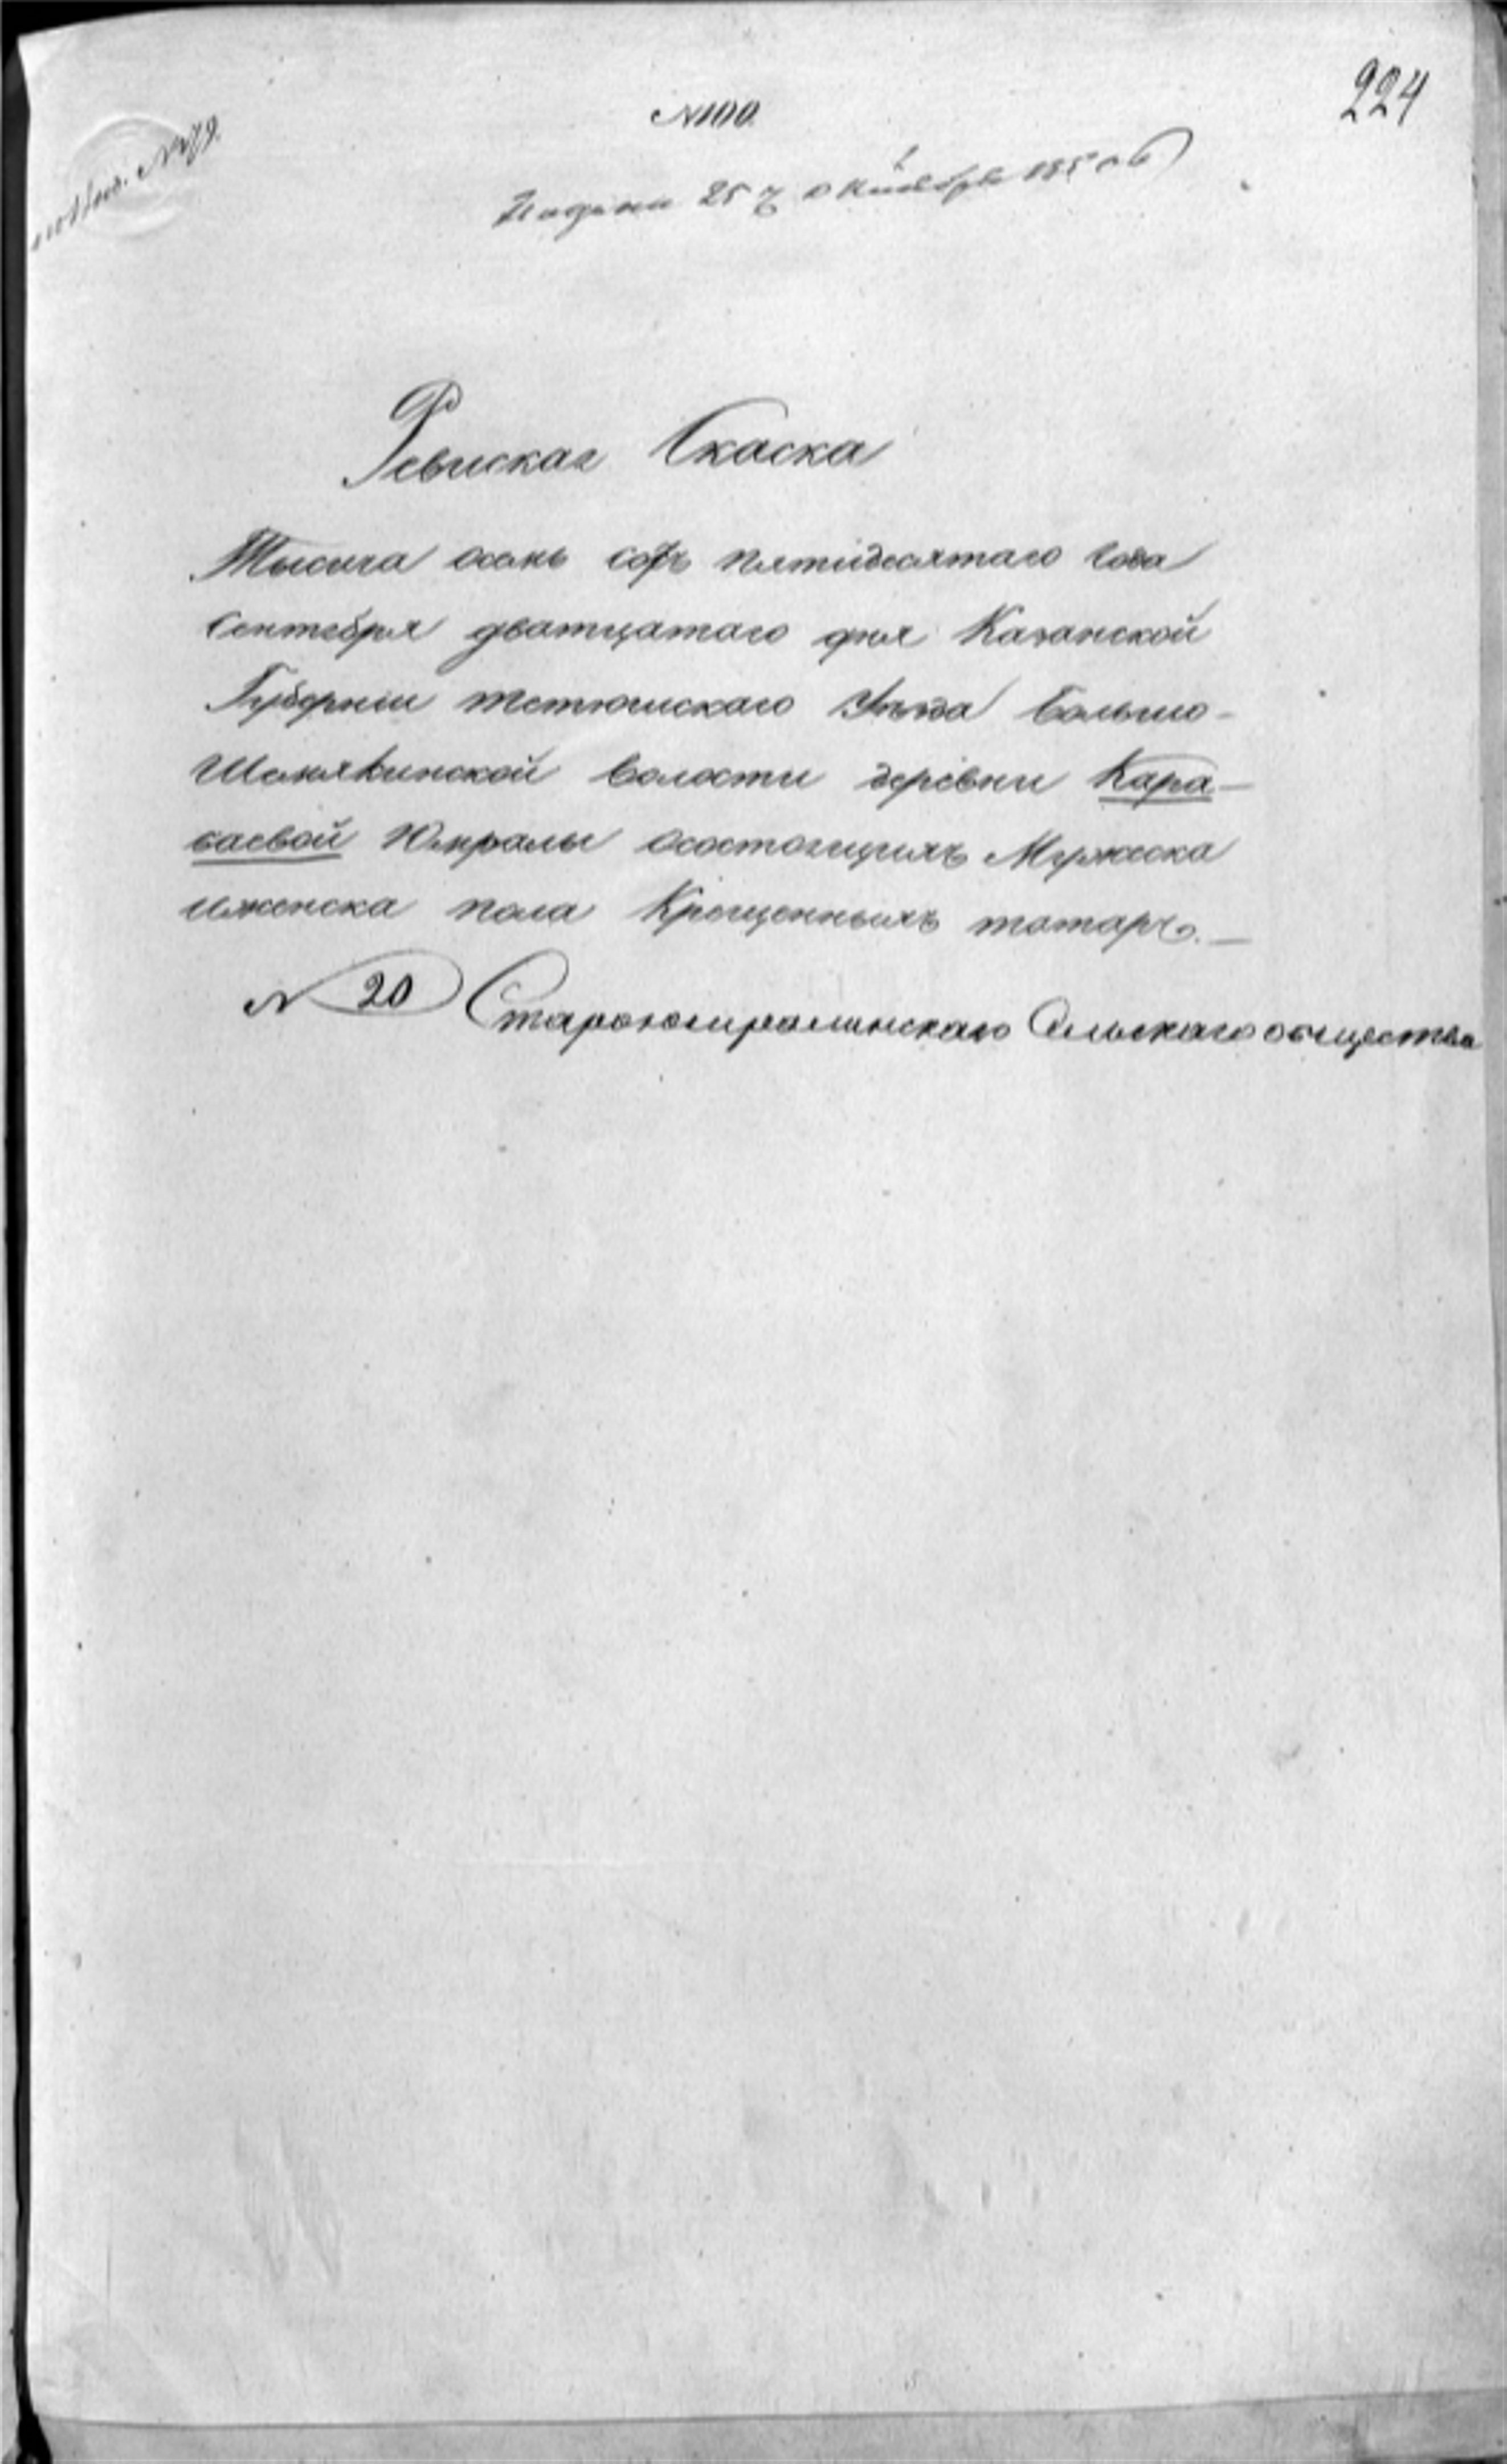 224
№100.
Подана 25 октября 1850
Ревиская Скаска
Тысяча осемь сотъ пятидесятаго года
Сентября дватцатаго дня Казанской
Губернии тетюшскаго Уѣзда больше-
Шемякинской волости деревни Кара-
баевой Юмралы осостоящихъ Мужеска
иженска пола Крещенныхъ татаръ.—
№ 20 Староюмралинскаго Сельскаго общества